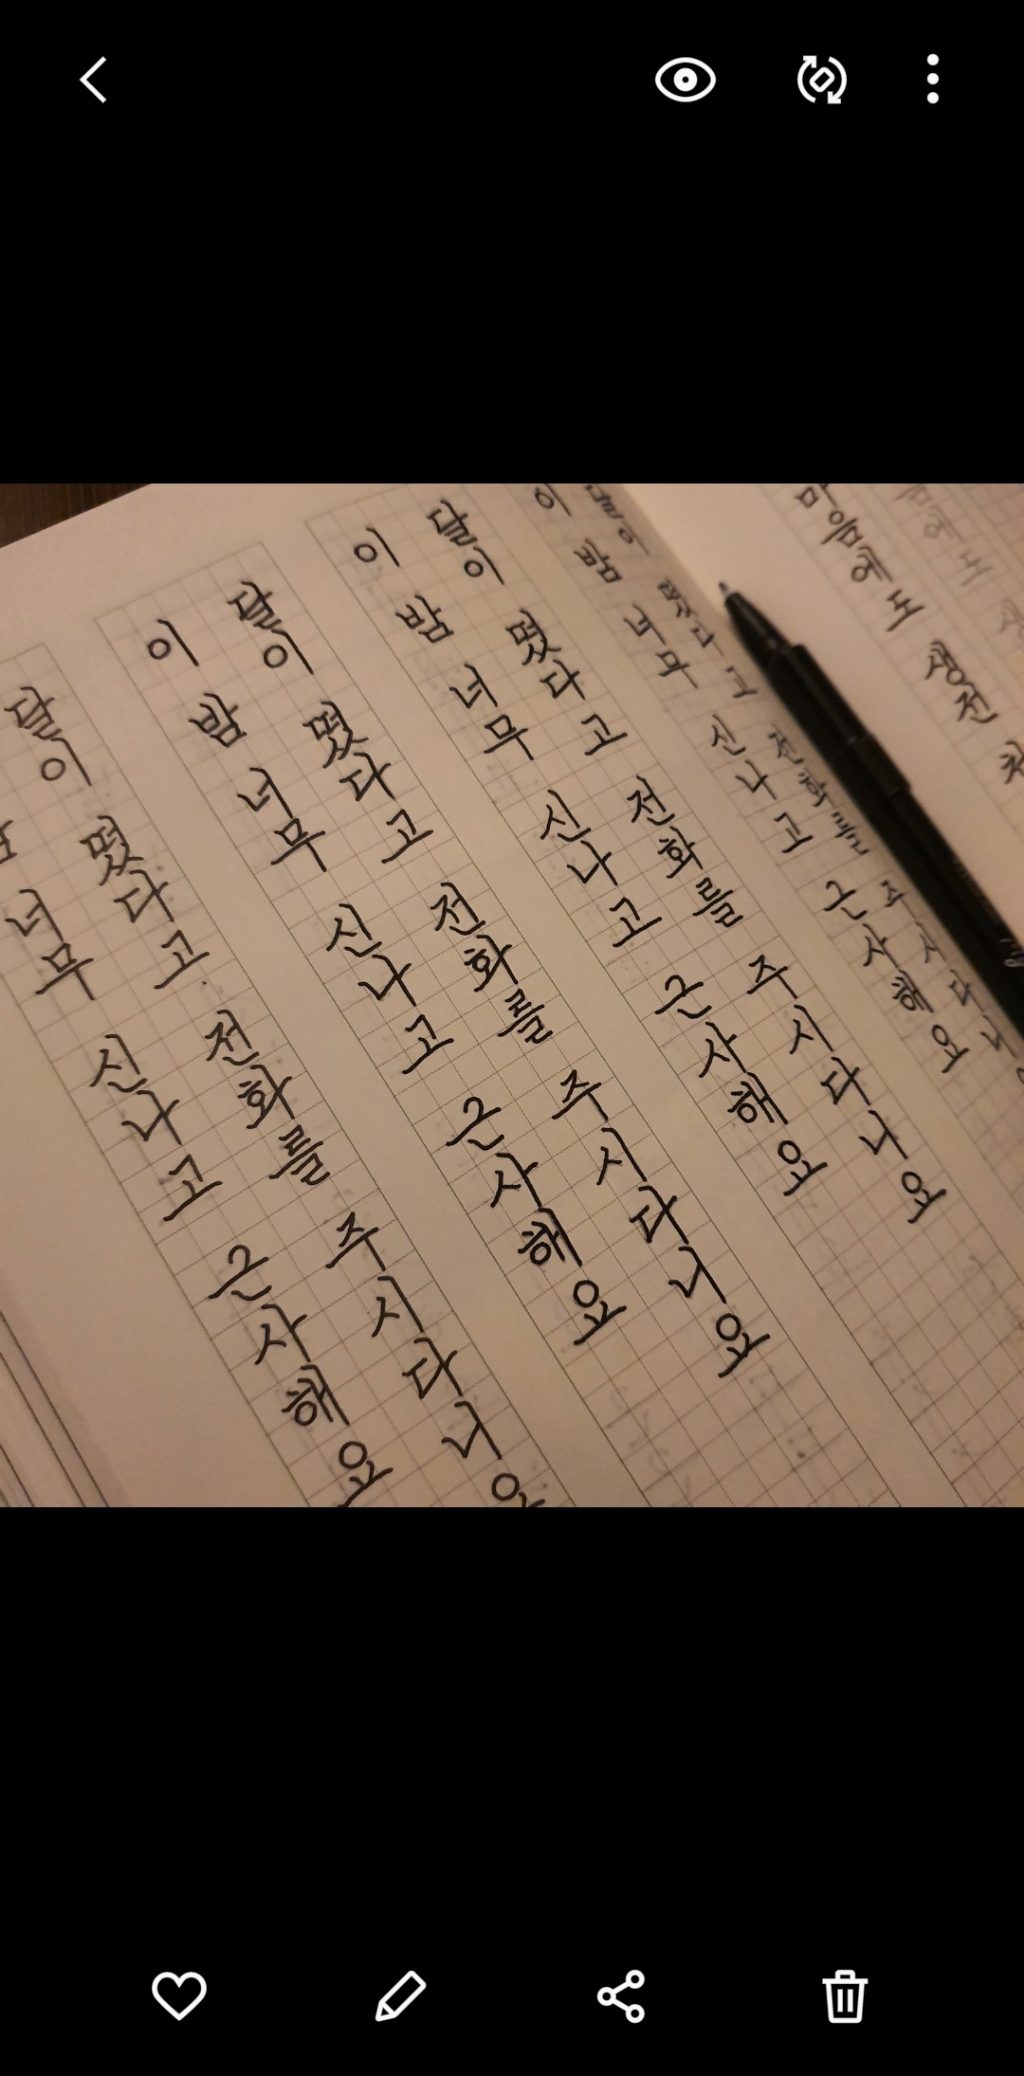 마음에도 생전
달이 떴다고 전화를 주시다니
이 밤 너무 신나고 근사해요
달이 떴다고 전화를 주시다니요
이 밤 너무 신나고 근사해요
달이 떴다고 전화를 주시다니요
이 밤 너무 신나고 근사해요
달이 떴다고 전화를 주시다니요
너무 신나고 근사해요